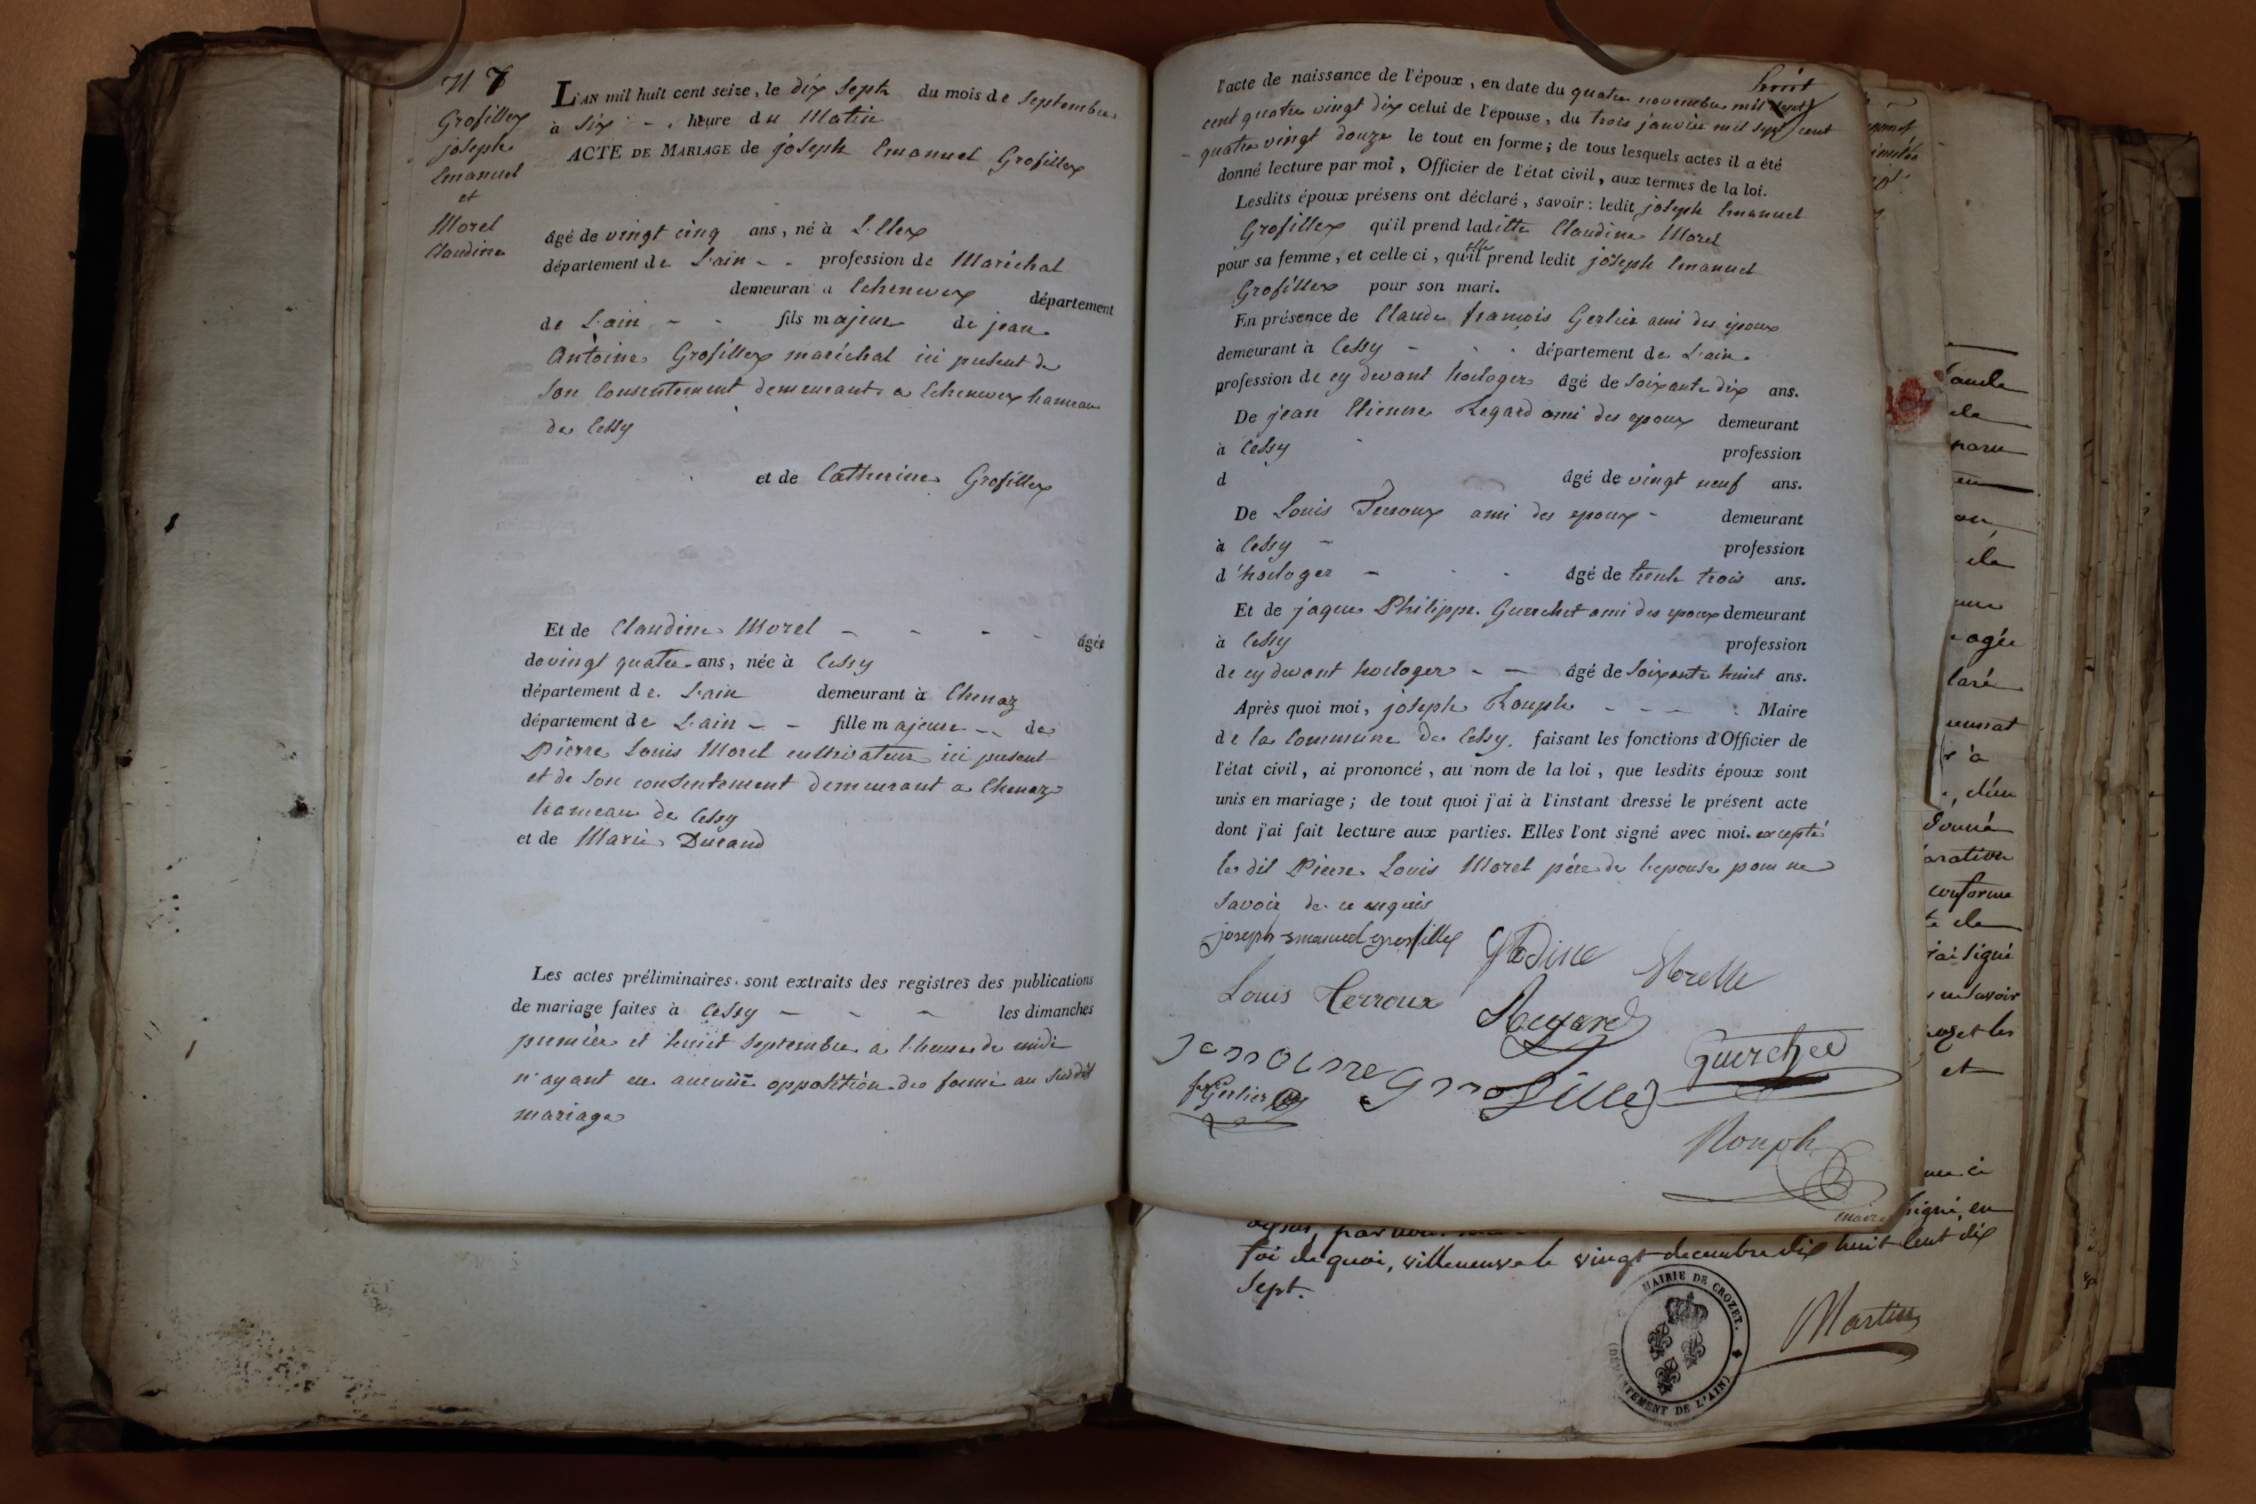 N 7
Grosillex
joseph
Emanuel
et
Morel
Claudine
L'AN mil huit cent seize, le dix sept du mois de Septembre
à six - . heure du Matin
ACTE DE MARIAGE de joseph Emanuel Grosillex
âgé de vingt cinq ans, né à
département de L'ain - - profession de Maréchal
demeuran a Echenevex département
de L'ain - - fils majeur de jean
Antoine Grosillex maréchal ici present de
son Consentement demeurant a Echenevex hameau
de Cessy
et de Catherine Grosillex
Et de Claudine Morel - - - - âgée
de vingt quatre ans, née à Cessy
département de L'ain demeurant à Chenaz
département de L'ain - - fille majeure - - de
Pierre Louis Morel cultivateur ici present
et de son consentement demeurant a Chenaz
hameau de Cessy
et de Marie Durand
Les actes préliminaires sont extraits des registres des publications
de mariage faites à Cessy - - - les dimanches
premier et huit Septembre a l'heure de midi
n'ayant eu aucune opposition de formé au susdit
mariage
l'acte de naissance de l'époux, en date du quatre novembre mil sept
cent quatre vingt dix celui de l'épouse, du trois janvier mil sept cent
quatre vingt douze le tout en forme; de tous lesquels actes il a été
donné lecture par moi, Officier de l'état civil, aux termes de la loi.
Lesdits époux présens ont déclaré, savoir: ledit joseph Emanuel
Grosillex qu'il prend laditte Claudine Morel
pour sa femme, et celle ci, qu'elle prend ledit joseph Emanuel
Grosillex pour son mari.
En présence de Claude françois Gerlier ami des époux
demeurant à Cessy - - . département de L'ain
profession de cy devant horloger âgé de soixante dix ans.
De jean Etienne Regard ami des epoux demeurant
à Cessy profession
d âgé de vingt neuf ans.
De Louis Terroux ami des epoux - demeurant
à Cessy - profession
d'horloger - - - âgé de trente trois ans.
Et de jaques Philippe Guerchet ami des epoux demeurant
à Cessy profession
de cy devant horloger - - âgé de soixante huit ans.
Après quoi moi, joseph Rouph - - - - Maire
de la Commune de Cessy, faisant les fonctions d'Officier de
l'état civil, ai prononcé, au nom de la loi, que lesdits époux sont
unis en mariage; de tout quoi j'ai à l'instant dressé le présent acte
dont j'ai fait lecture aux parties. Elles l'ont signé avec moi. excepté
le dit Pierre Louis Morel pére de l'epouse pour ne
savoir de ce enquis
joseph emanuel grosillex
Morelle
Louis Terroux
Regard
Guerchet
Gerlier
Rouph
maire
foi de quoi, villeneuve le vingt decembre dix huit cent dix
sept.
MAIRIE DE CROZET.
(DÉPARTEMENT DE L'AIN)
Martin